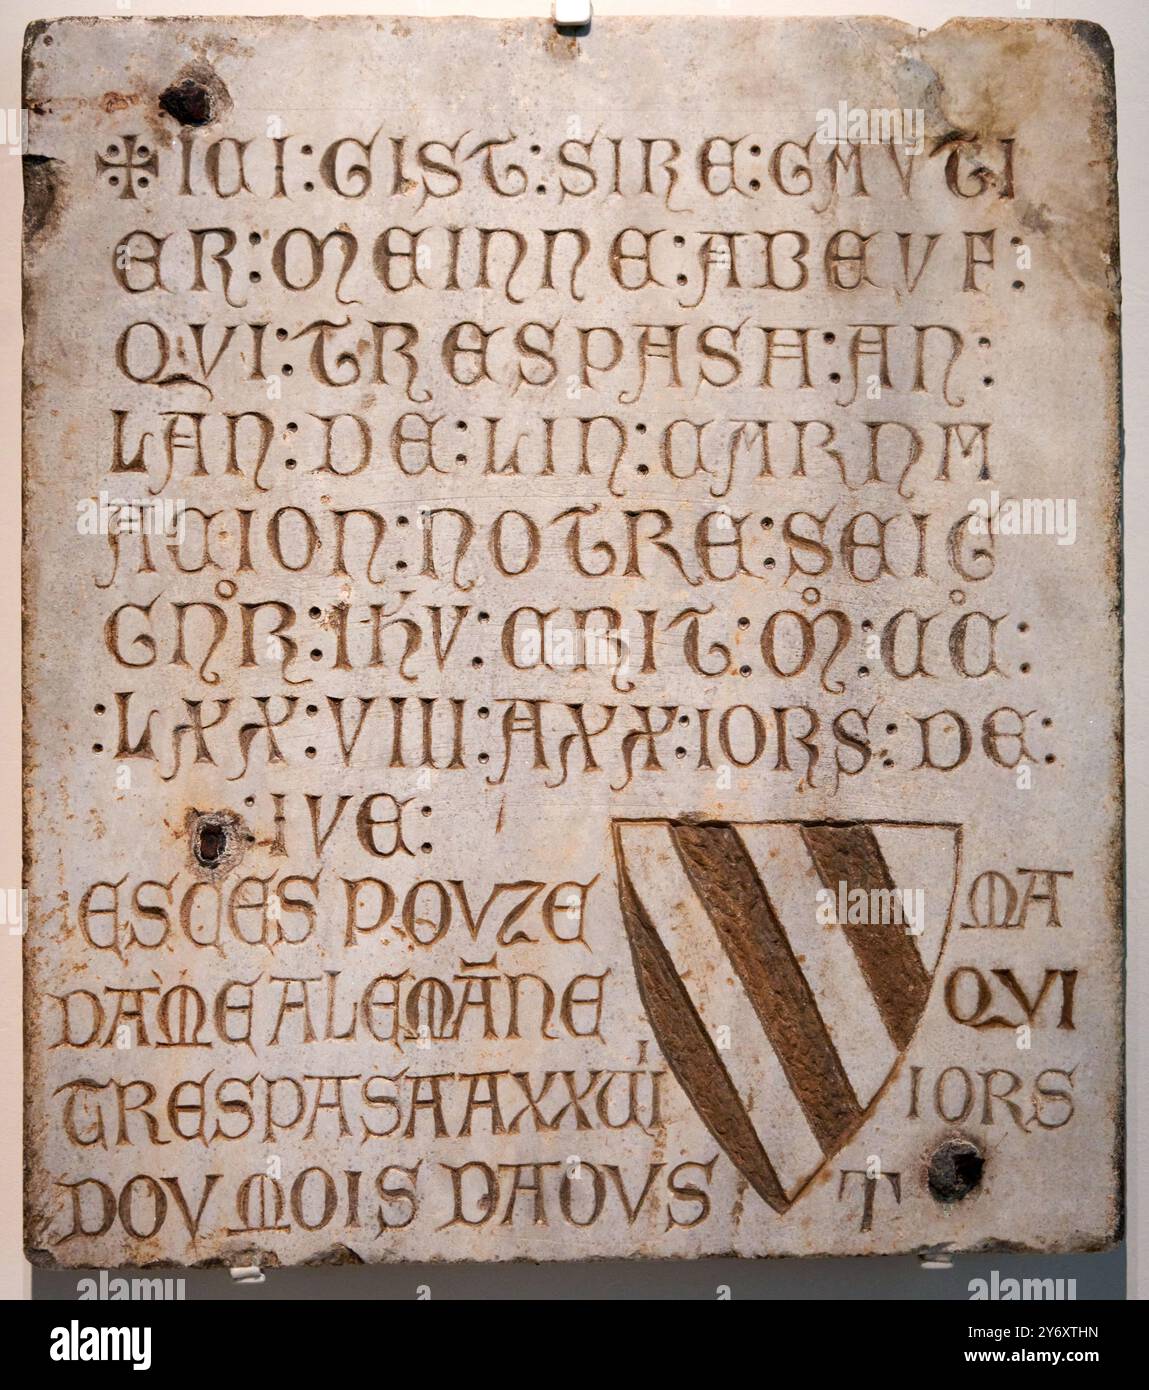 ✠ ICI : GIST : SIRE : GAUTI
ER : MEINNE : ABEUF :
QVI : TRESPASA : AN :
LAN : DE : LIN : CARNA
ACION : NOTRE : SEIG
GNºR : IHV : CRIT : Mº : CºC :
: LXX : VIII : A XX : IORS : DE :
: IVE :
ESCES POVZE MA
DAME ALEMĀNE QVI
TRESPASA A XXVII IORS
DOV MOIS DAOVS T
alamy
Image ID: 2Y6XTHN
www.alamy.com